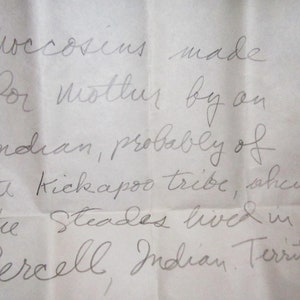 moccosins made
for Mother by an
Indian, probably of
a Kickapoo tribe, when
the Steades lived in
Percell, Indian Terri